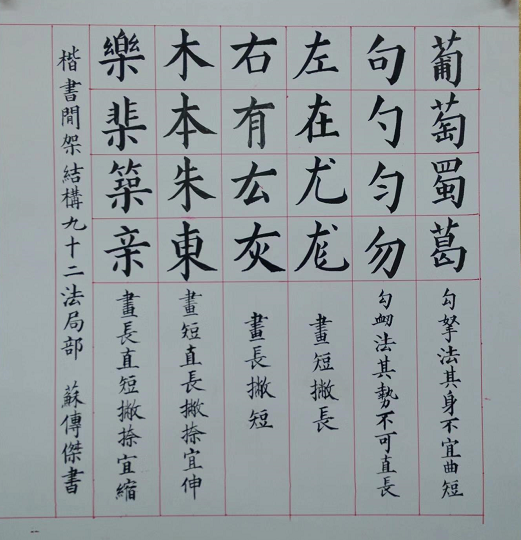 葡萄蜀葛 勾拏法其身不宜曲短
句勺匀勿 勾衂法其勢不可直長
左在尤尨 畫短撇長
右有厷灰 畫長撇短
木本朱東 畫短直長撇捺宜伸
樂棐築亲 畫長直短撇捺宜縮
楷書閒架結構九十二法局部 蘇傳傑書